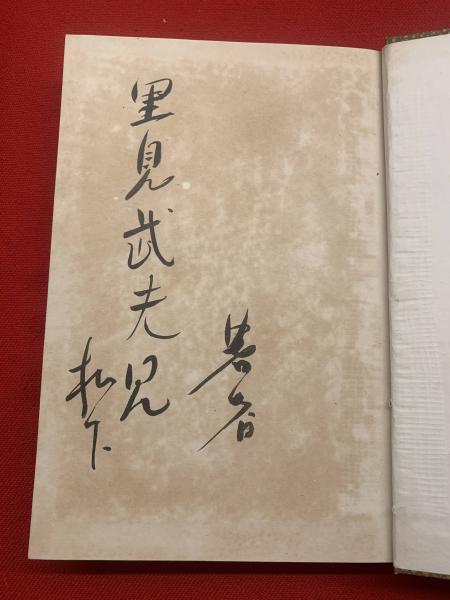 著者
里見武夫兄
机下